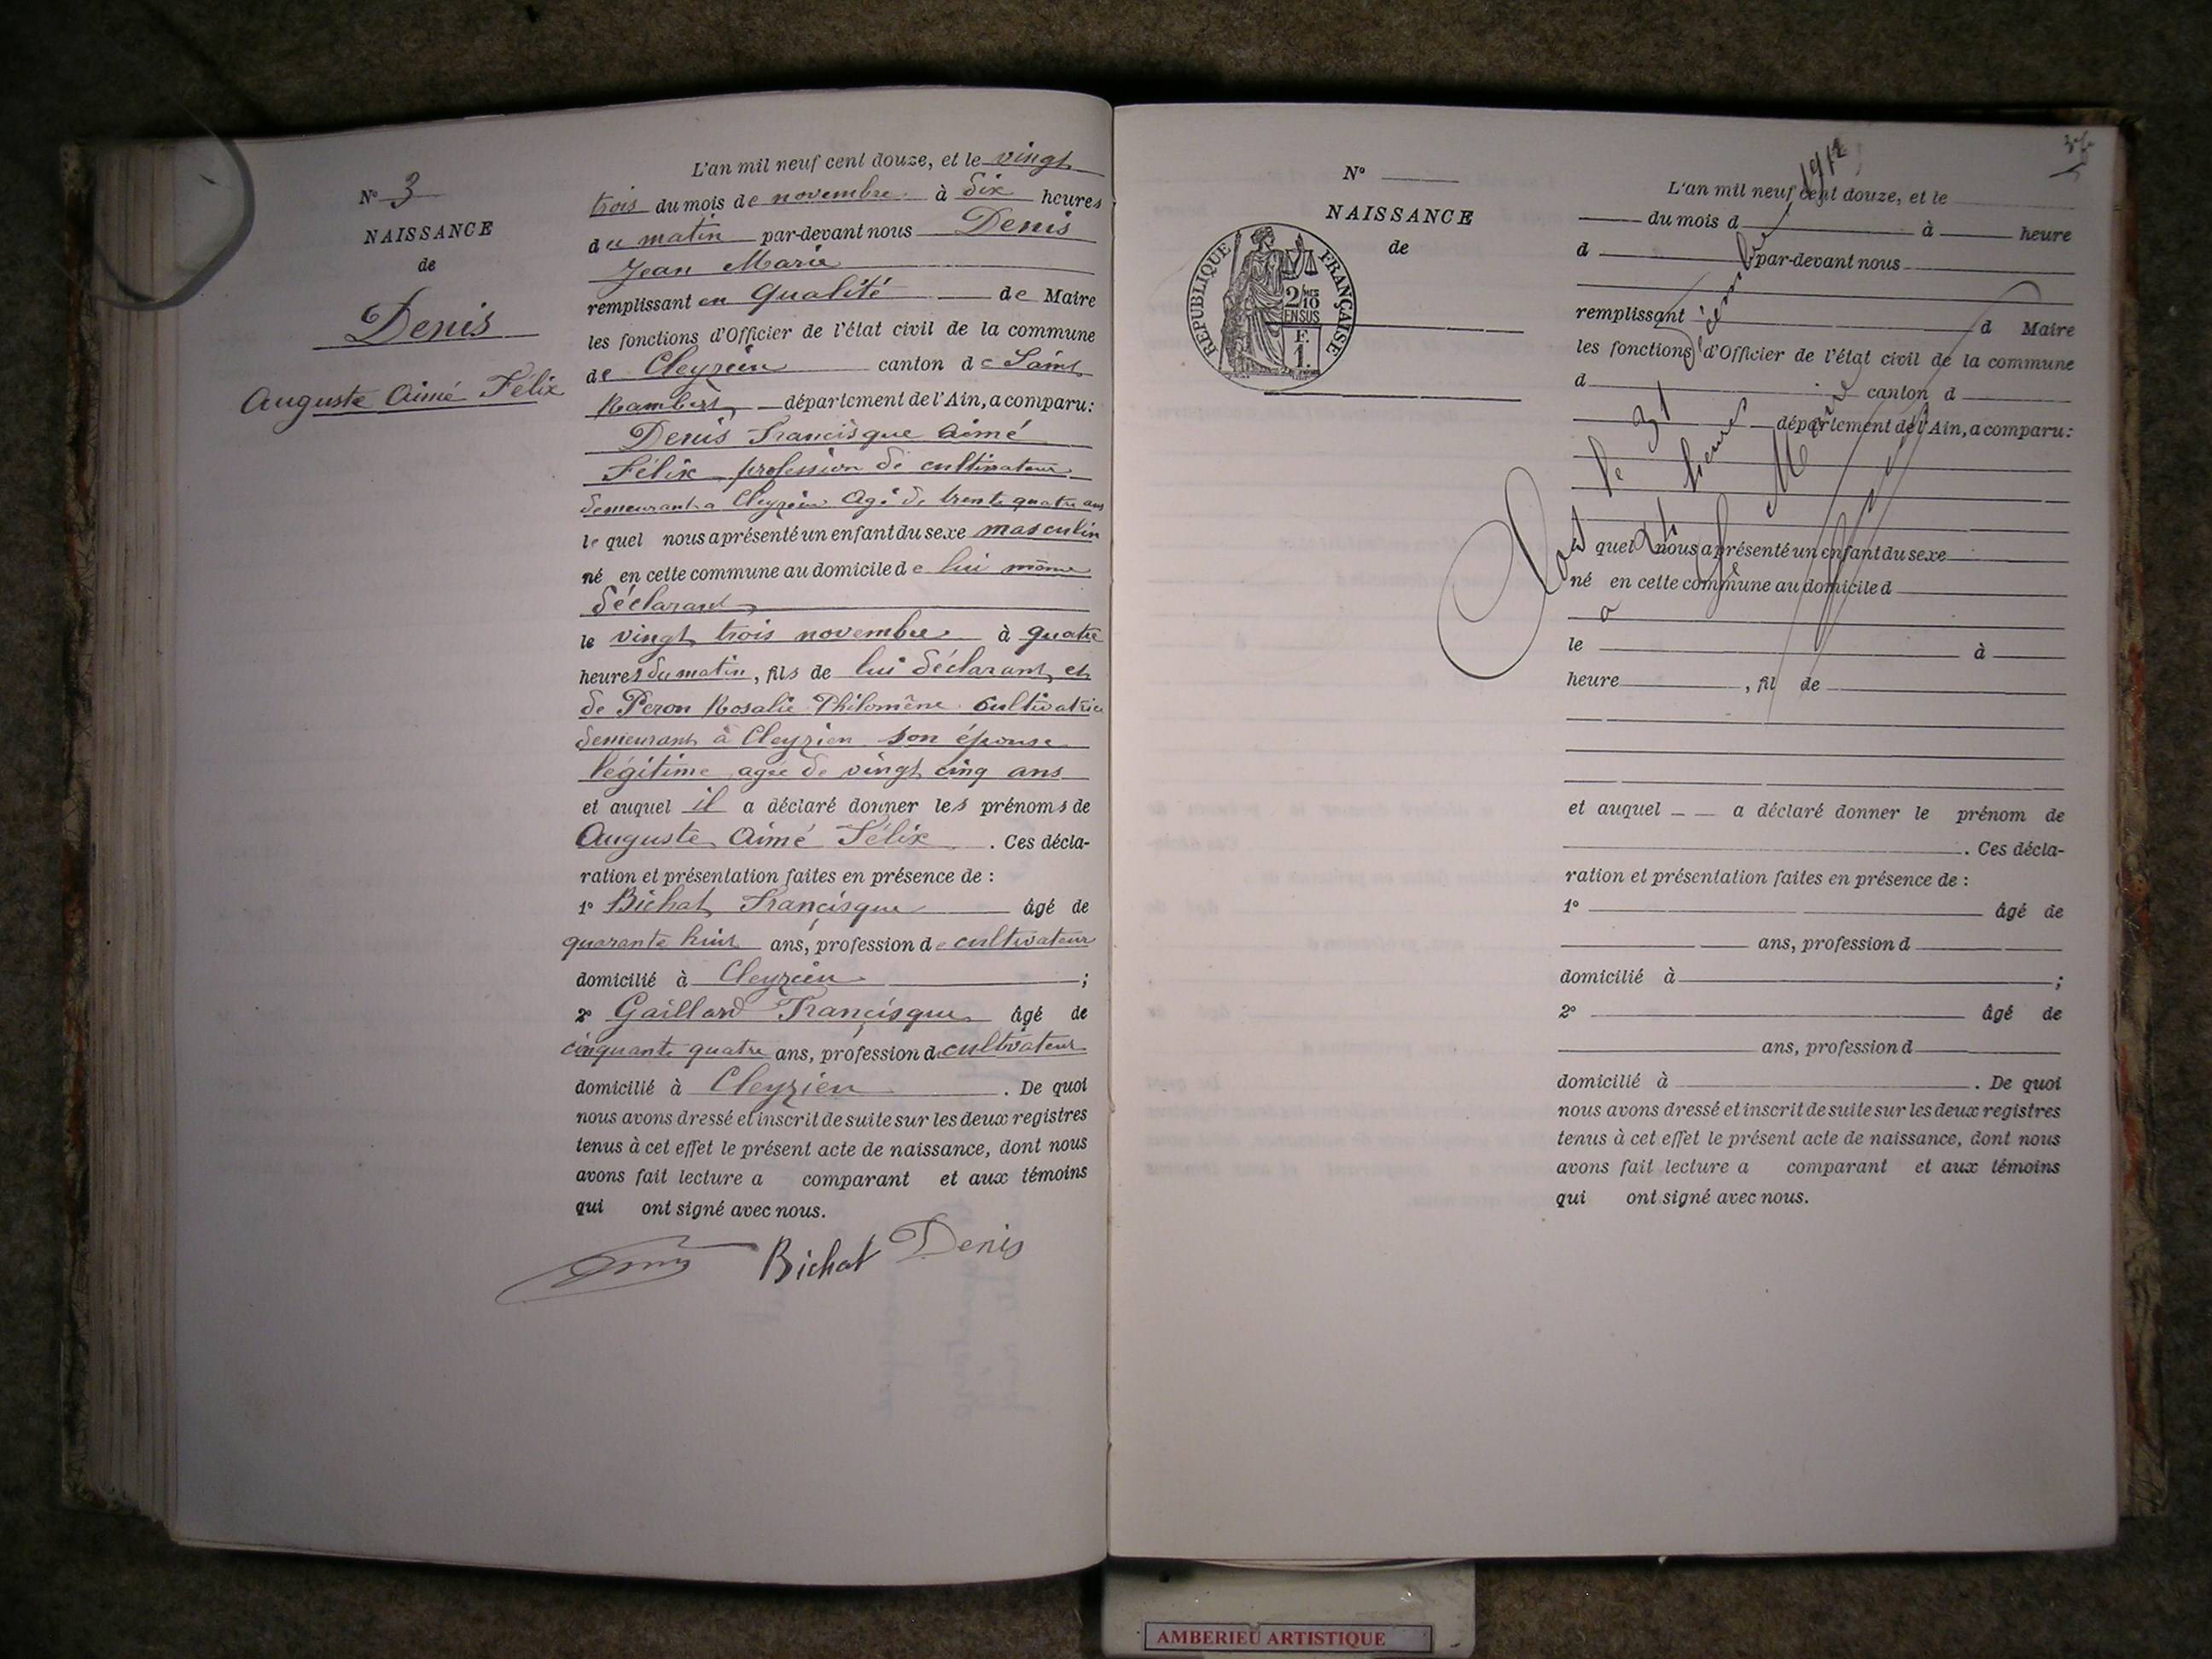 N° 3
NAISSANCE
de
Denis
Auguste Aimé Felix
L'an mil neuf cent douze, et le vingt
trois du mois de novembre à dix heures
du matin par-devant nous Denis
Jean Marie
remplissant en qualité de Maire
les fonctions d'Officier de l'état civil de la commune
de Cleyzieu canton de Saint
Rambert département de l'Ain, a comparu:
Denis Francisque Aimé
Félix profession de cultivateur
demeurant a Cleyzieu Agé de trente quatre ans
le quel nous a présenté un enfant du sexe masculin
né en cette commune au domicile de lui même
déclarant
le vingt trois novembre à quatre
heures du matin, fils de lui déclarant et
de Peron Rosalie Philomène cultivatrice
demeurant à Cleyzieu son épouse
légitime agée de vingt cinq ans
et auquel il a déclaré donner les prénoms de
Auguste Aimé Félix . Ces décla-
ration et présentation faites en présence de :
1° Bichat Francisque âgé de
quarante huit ans, profession de cultivateur
domicilié à Cleyzieu ;
2° Gaillard Francisque âgé de
cinquante quatre ans, profession de cultivateur
domicilié à Cleyzieu . De quoi
nous avons dressé et inscrit de suite sur les deux registres
tenus à cet effet le présent acte de naissance, dont nous
avons fait lecture a comparant et aux témoins
qui ont signé avec nous.
Bichat Denis
N°
NAISSANCE
de
REPUBLIQUE FRANÇAISE
2/10
EN SUS
F.
1.
1912
L'an mil neuf cent douze, et le
du mois d à heure
d par-devant nous
remplissant d Maire
les fonctions d'Officier de l'état civil de la commune
d canton d
département de l'Ain, a comparu:
le 31
quel nous a présenté un enfant du sexe
né en cette commune au domicile d
le à
heure , fil de
et auquel a déclaré donner le prénom de
. Ces décla-
ration et présentation faites en présence de :
1° âgé de
ans, profession d
domicilié à ;
2° âgé de
ans, profession d
domicilié à . De quoi
nous avons dressé et inscrit de suite sur les deux registres
tenus à cet effet le présent acte de naissance, dont nous
avons fait lecture a comparant et aux témoins
qui ont signé avec nous.
AMBERIEU ARTISTIQUE